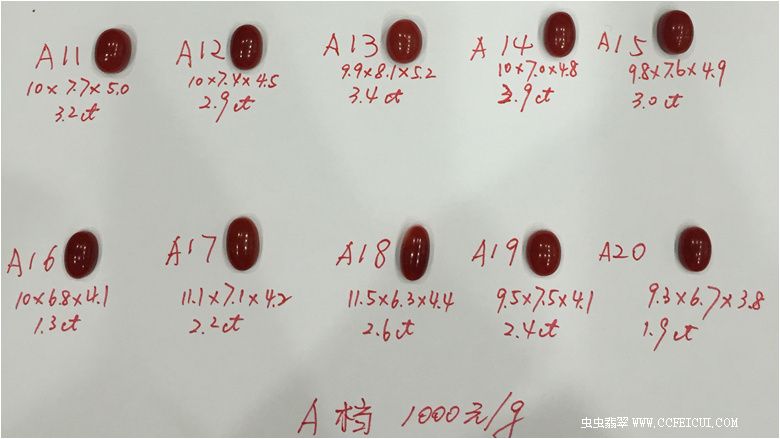 A11
10×7.7×5.0
3.2ct
A12
10×7.4×4.5
2.9ct
A13
9.9×8.1×5.2
3.4ct
A14
10×7.0×4.8
2.9ct
A15
9.8×7.6×4.9
3.0ct
A16
10×6.8×4.1
1.3ct
A17
11.1×7.1×4.2
2.2ct
A18
11.5×6.3×4.4
2.6ct
A19
9.5×7.5×4.1
2.4ct
A20
9.3×6.7×3.8
1.9ct
A档 1000元/g
虫虫翡翠 WWW.CCFEICUI.COM